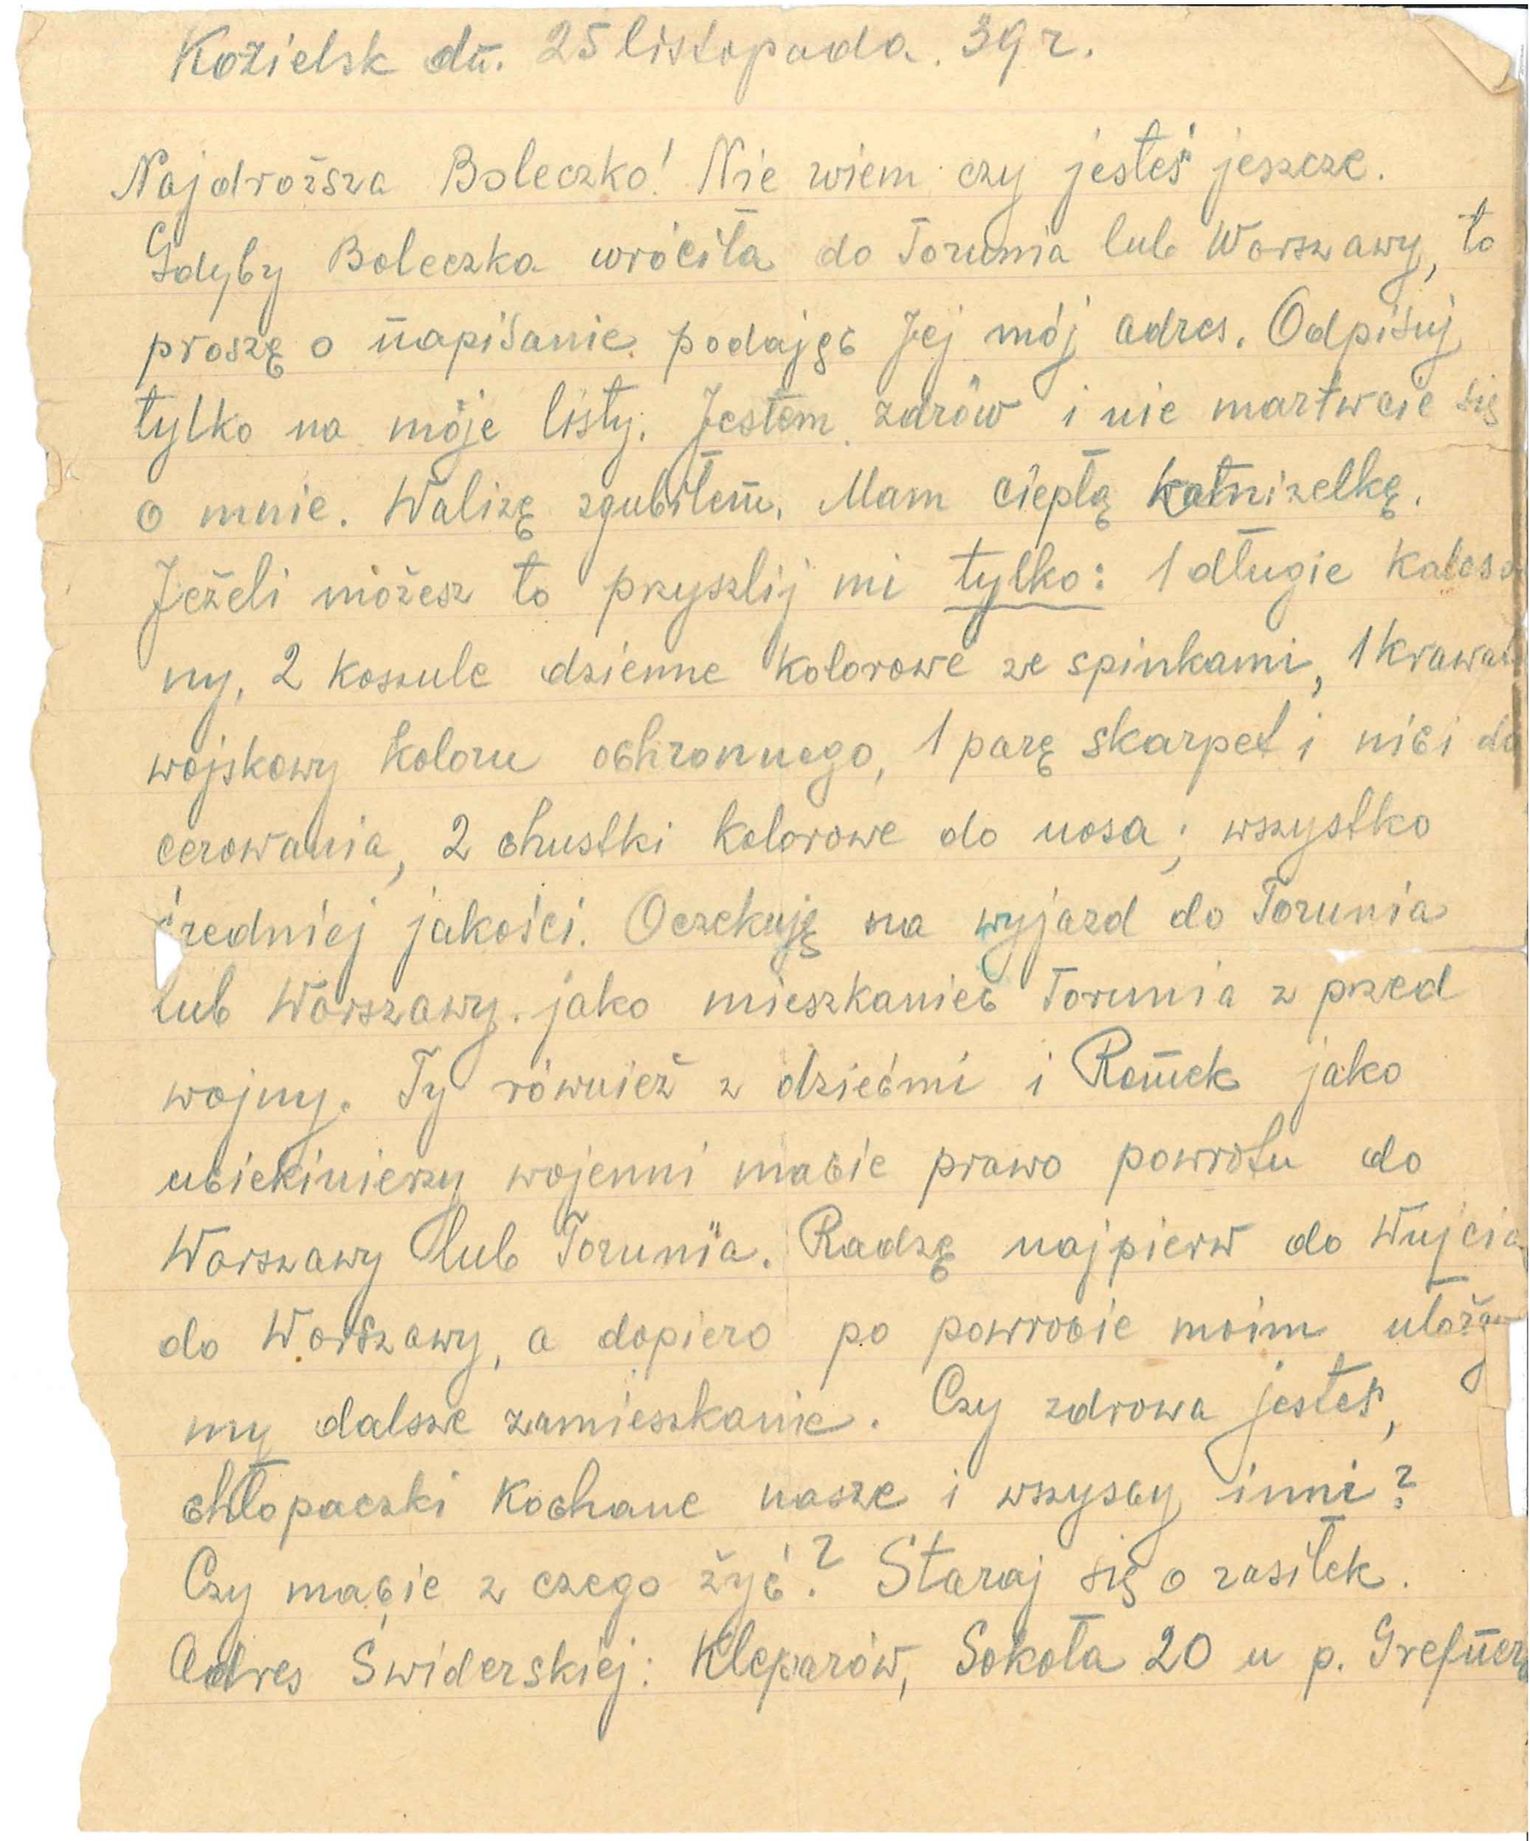 Kozielsk dn. 25 listopada. 39 r.
Najdroższa Boleczko! Nie wiem czy jesteś jeszcze.
Gdyby Boleczka wróciła do Torunia lub Warszawy, to
proszę o napisanie podając Jej mój adres. Odpisuj
tylko na moje listy. Jestem zdrów i nie martwcie się
o mnie. Walizę zgubiłem. Mam ciepłą kamizelkę.
Jeżeli możesz to przyszlij mi tylko: 1 długie kaleso
ny, 2 koszule dzienne kolorowe ze spinkami, 1 krawat
wojskowy koloru ochronnego, 1 parę skarpet i nici do
cerowania, 2 chustki kolorowe do nosa; wszystko
średniej jakości. Oczekuję na wyjazd do Torunia
lub Warszawy. jako mieszkaniec Torunia z przed
wojny. Ty również z dziećmi i Romek jako
uciekinierzy wojenni macie prawo powrotu do
Warszawy lub Torunia. Radzę najpierw do Wujcia
do Warszawy, a dopiero po powrocie moim ułoży
my dalsze zamieszkanie. Czy zdrowa jesteś,
chłopaczki kochane nasze i wszyscy inni?
Czy macie z czego żyć? Staraj się o zasiłek.
Adres Świderskiej: Kleparów, Sokoła 20 u p.